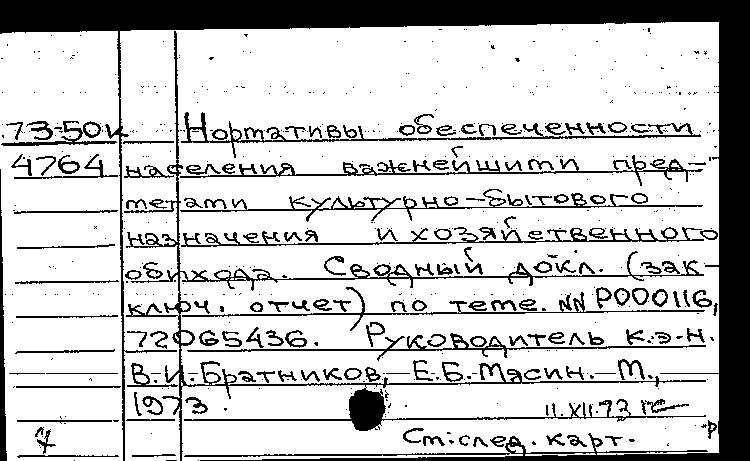 73-50к Нормативы обеспеченности
4764 населения важнейшими пред-
метами культурно-бытового
назначения и хозяйственного
обихода. Сводный докл. (зак-
ключ. отчет) по теме. NN Р000116,
72065436. Руководитель к.э.н.
В.И.Братников, Е.Б.Мясин. М.,
1973.
11.XII.73
См.след. карт.